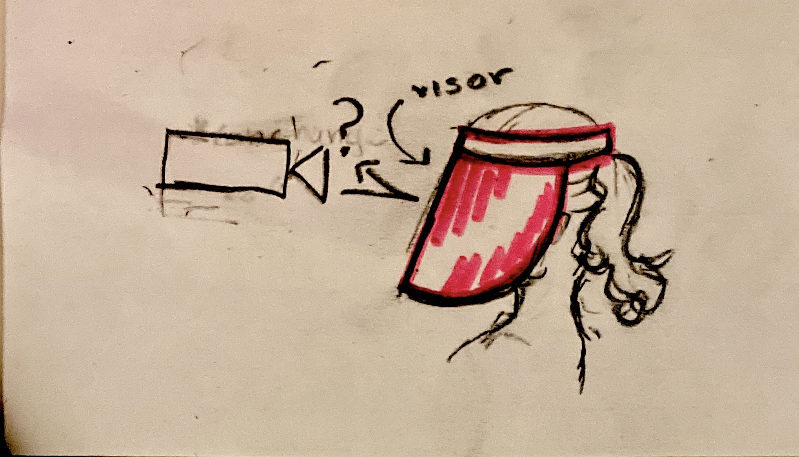 visor
?